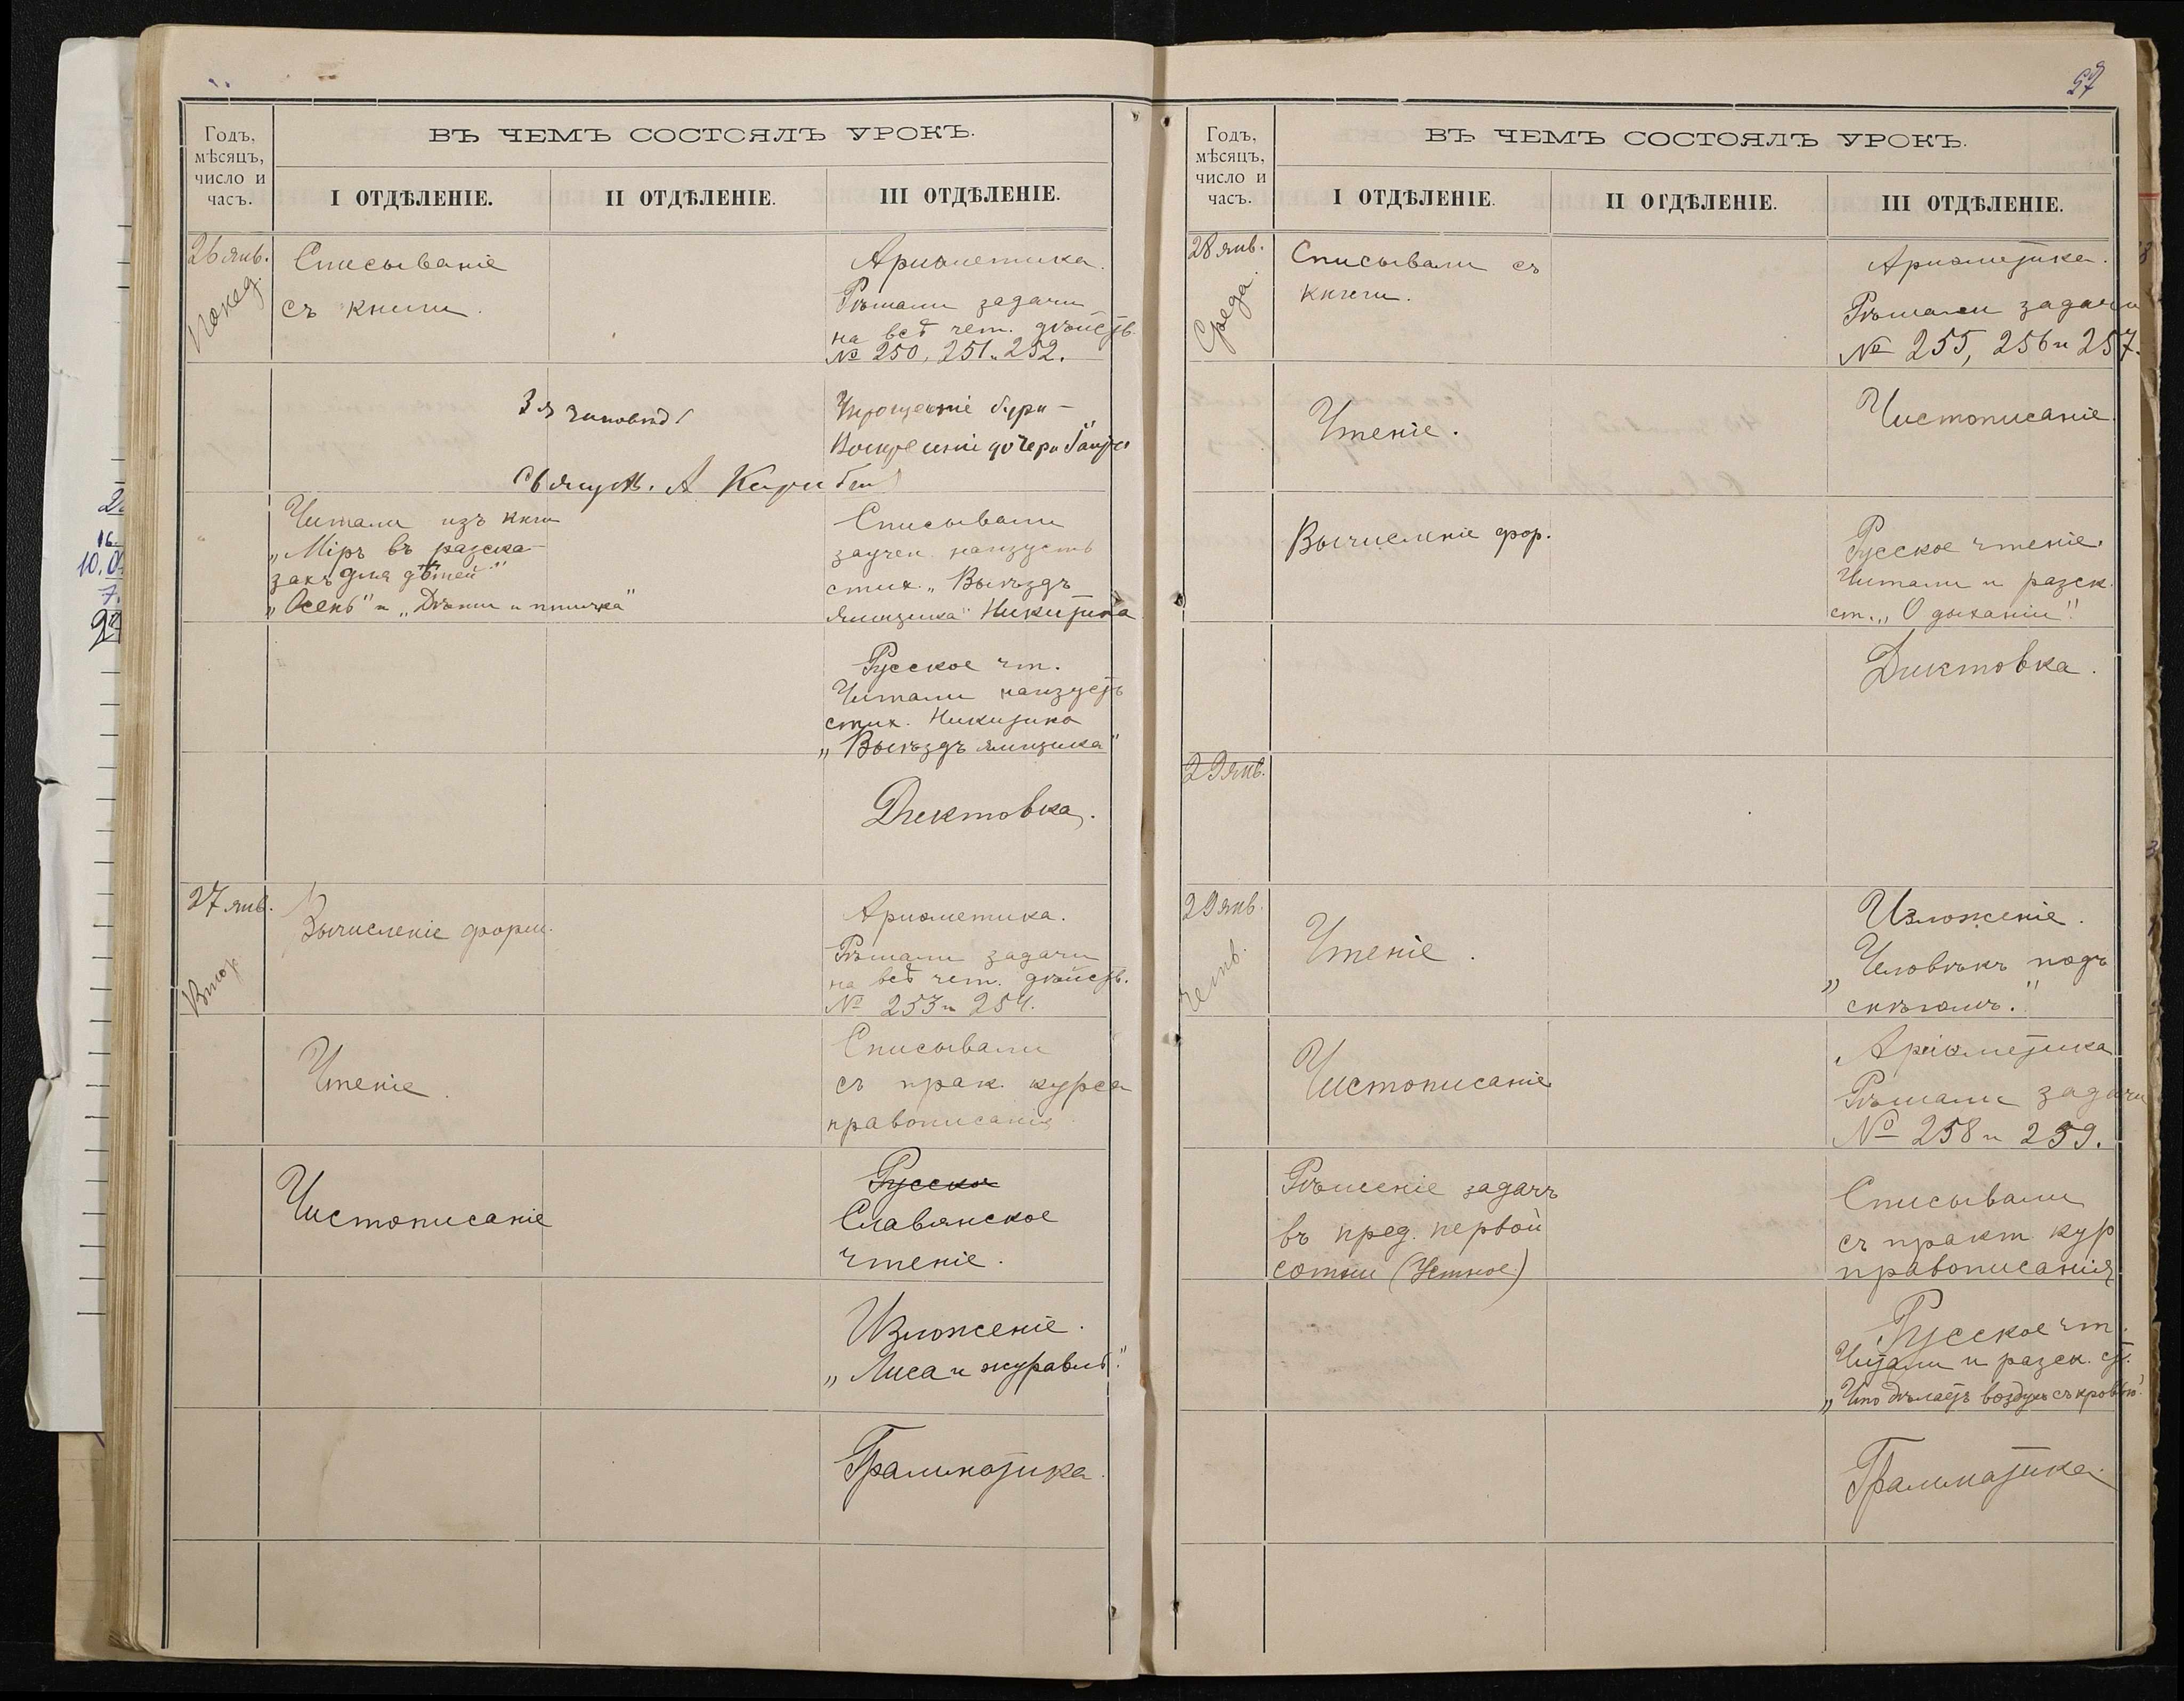 Годъ,
мѣсяцъ,
число и
часъ.
ВЪ ЧЕМЪ СОСТОЯЛЪ УРОКЪ.
I ОТДѢЛЕНІЕ.
II ОТДѢЛЕНІЕ.
III ОТДѢЛЕНІЕ.
26 янв.
Понед.
Списываніе
съ книги.
Ариѳметика.
Рѣшали задачи
на всѣ чет. дѣйств.
№ 250, 251 и 252.
3я заповѣдь
Укрощеніе бури –
Воскрешеніе дочери Іаира
Священ. А
Читали изъ книги
„Міръ въ разска-
захъ для дѣтей"
„Осень" и „Дѣти и птичка"
Списывали
заучен. наизусть
стих. „Выѣздъ
ямщика" Никитина
Русское чт.
Читали наизусть
стих. Никитина
„Выѣздъ ямщика"
Диктовка.
27 янв.
Втор.
Вычисленіе форм.
Ариѳметика.
Рѣшали задачи
на всѣ чет. дѣйств.
№ 253 и 254.
Чтеніе.
Списывали
съ прак. курса
правописанія
Чистописаніе
Русское
Славянское
чтеніе.
Изложеніе.
„Лиса и журавль."
Грамматика.
57
Годъ,
мѣсяцъ,
число и
часъ.
ВЪ ЧЕМЪ СОСТОЯЛЪ УРОКЪ.
I ОТДѢЛЕНІЕ.
II ОТДѢЛЕНІЕ.
III ОТДѢЛЕНІЕ.
28 янв.
Среда.
Списывали съ
книги.
Ариѳметика.
Рѣшали задачи
№ 255, 256 и 257.
Чтеніе.
Чистописаніе.
Вычисленіе фор.
Русское чтеніе.
Читали и разск.
ст. „О дыханіи"
Диктовка.
29 янв.
29 янв.
Четв.
Чтеніе.
Изложеніе.
„Человѣкъ подъ
снѣгомъ."
Чистописаніе
Ариѳметика
Рѣшали задачи
№ 258 и 259.
Рѣшеніе задачъ
въ пред. первой
сотни (Устное)
Списывали
съ практ. кур
правописанія
Русское чт.
Читали и разск. ст.
„Что дѣлаетъ воздухъ съ кровью"
Грамматика.